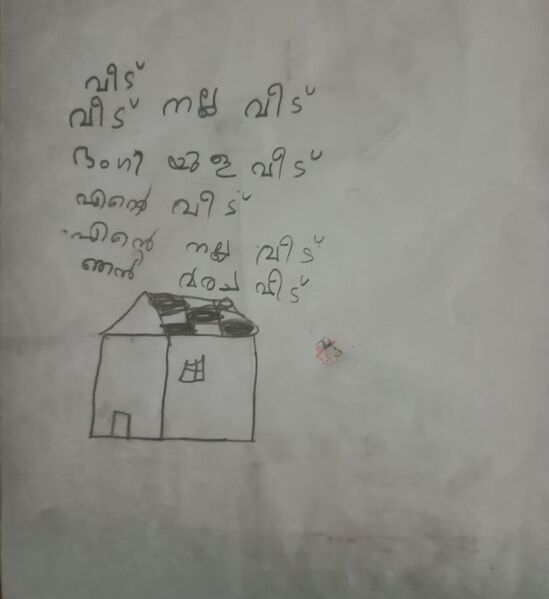 വീട്
വീട് നല്ല വീട്
ഭംഗി യുള വീട്
എന്റെ വീട്
എന്റെ നല്ല വീട്
ഞൻ വരച വീട്